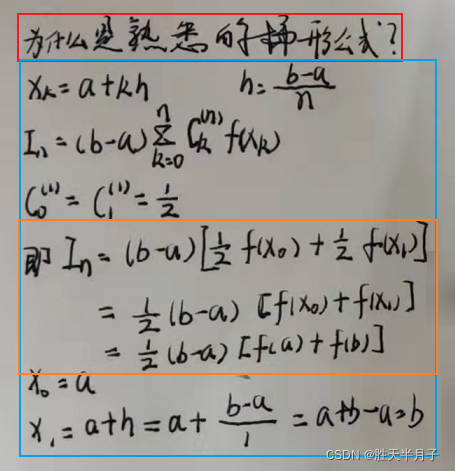 为什么是熟悉的梯形公式?
xₖ = a + kh h = (b-a)/n
Iₙ = (b-a) Σₖ₌₀ⁿ Cₖ⁽ⁿ⁾ f(xₖ)
C₀⁽¹⁾ = C₁⁽¹⁾ = 1/2
即 Iₙ = (b-a) [1/2 f(x₀) + 1/2 f(x₁)]
= 1/2 (b-a) [f(x₀) + f(x₁)]
= 1/2 (b-a) [f(a) + f(b)]
x₀ = a
x₁ = a + h = a + (b-a)/1 = a + b - a = b
CSDN @胜天半月子